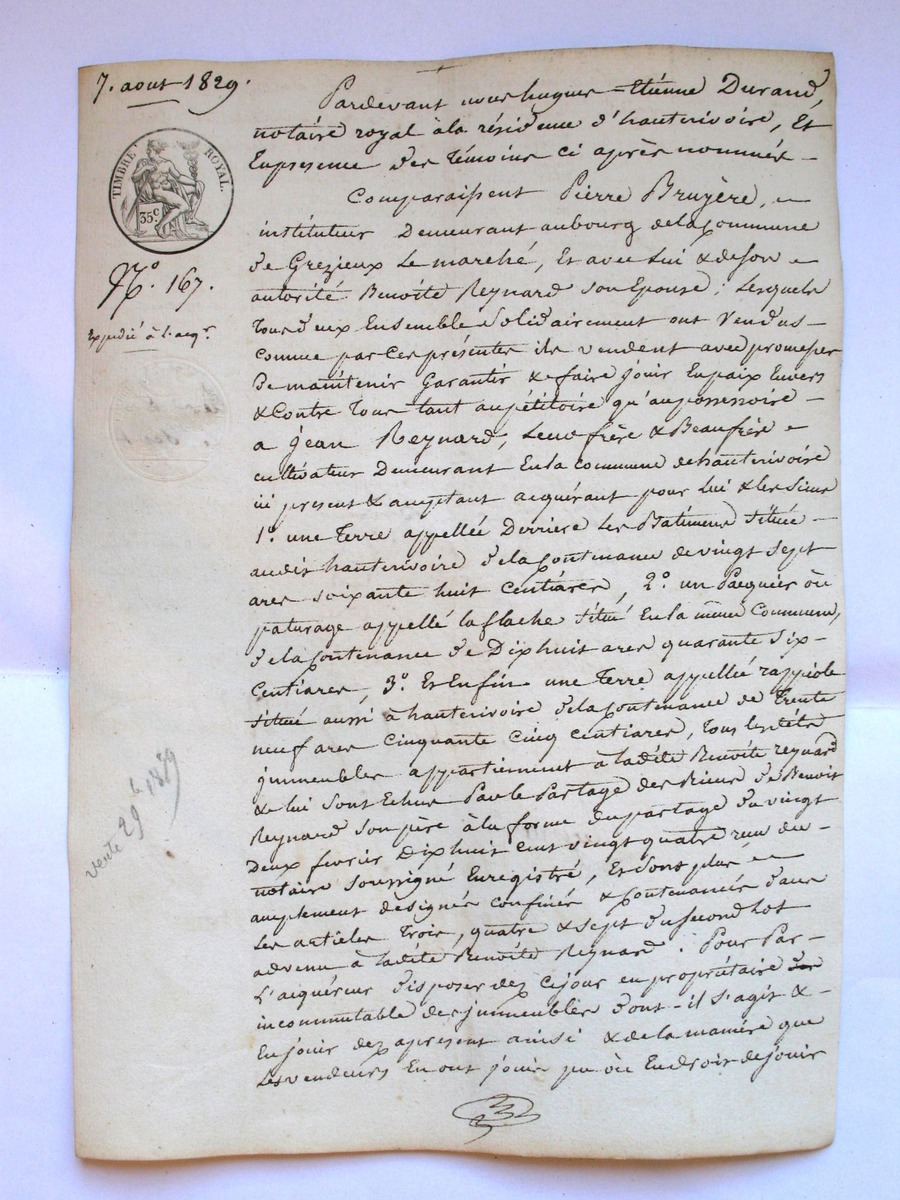 7. aout 1829.
TIMBRE ROYAL.
35 c.
N.º 167.
Expédié à l'acqr.
vente 29 1829
Pardevant nous hugues Etiénne Durand,
notaire royal à la résidence d'hauterivoire, Et
En presence des témoins ci après nommés
Comparaissent Pierre Bruyère,
instituteur Demeurant au bourg de la Commune
de Grezieux Le marché, Et avec Lui & de son
autorité Benoîte Reynard son Epouse ; Lesquels
tous deux Ensemble solidairement ont Vendus
comme par ces présentes ils vendent avec promesse
de maintenir Garantir & faire jouir En paix Envers
& Contre tous tant au pétitoire qu'au possessoire
a jean Reynard, Leur frère & Beaufrère
cultivateur Demeurant En la Commune de hauterivoire
ici present & acceptant acquérant pour Lui & les siens
1.º une terre appellée Derriere Les Batimens située
audit hauterivoire de la Contenance de vingt sept
ares soixante huit Centiares, 2.º un Paquéis où
paturage appellé la flache situé En la même Commune,
de la Contenance de Dixhuit ares quarante six
Centiares, 3.º Et Enfin une terre appellée rappiole
située aussi à hauterivoire de la Contenance de trente
neuf ares cinquante cinq centiares, tous lesdits
jmmeubles appartiennent à ladite Benoîte reynard
& lui sont Echus Par le Partage des Biens de Benoit
Reynard son père à la forme du partage du vingt
Deux fevrier Dixhuit cent vingt quatre reçu du
notaire soussigné Enregistré, Et sont plus
amplement désignés confinés & Contenancés dans
Les articles trois, quatre & sept du second Lot
advenu à ladite Benoîte Reynard. Pour Par
L'acquéreur disposer dez ce jour en propriétaire
incommutable des jmmeubles dont il s'agit &
En jouir dez apresent ainsi & de la maniére que
Les vendeurs En ont jouir pu où En droit de jouir